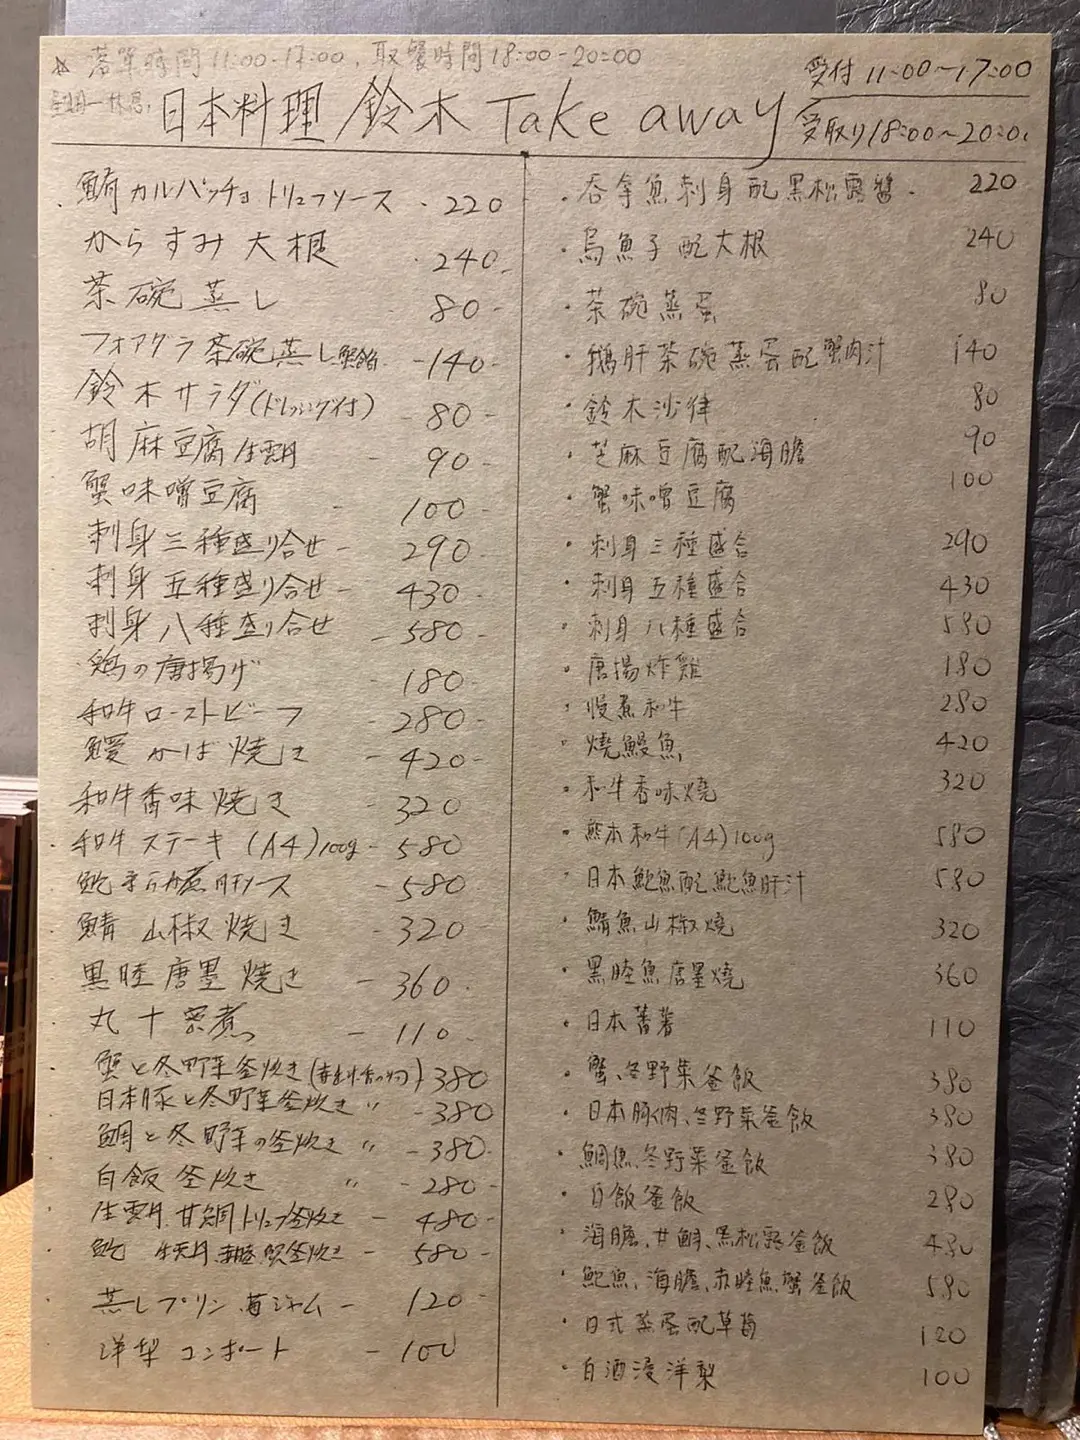 ☆ 落單時間11:00-17:00, 取餐時間18:00-20:00
星期一休息,
受付 11:00〜17:00
日本料理 鈴木 Take away
受取り18:00〜20:00
鮪カルパッチョ トリュフソース - 220
からすみ大根 - 240-
茶碗蒸し 80-
フォアグラ茶碗蒸し蟹餡 -140-
鈴木サラダ(ドレッシング付) - 80-
胡麻豆腐 生雲丹 - 90-
蟹味噌豆腐 - 100-
刺身三種盛り合せ - 290-
刺身五種盛り合せ - 430-
刺身八種盛り合せ - 580-
鶏の唐揚げ - 180-
和牛ローストビーフ - 280-
鰻かば焼き - 420-
和牛香味焼き - 320
和牛ステーキ (A4)100g - 580
鮑 煮 肝ソース - 580
鯖 山椒焼き - 320
黒睦唐墨焼き - 360.
丸十蜜煮 - 110
蟹と冬野菜釜炊き 380
日本豚と冬野菜釜炊き 〃 -380
鯛と冬野菜の釜炊き 〃 -380-
白飯 釜炊き 〃 -280-
生雲丹.甘鯛トリュフ釜炊き - 480-
鮑 生雲丹.赤睦.蟹釜炊き - 580-
蒸しプリン 苺ジャム - 120
洋梨コンポート - 100
・吞拿魚刺身配黑松露醬. 220
・烏魚子配大根 240
・茶碗蒸蛋 80
・鵝肝茶碗蒸蛋配蟹肉汁 140
・鈴木沙律 80
・芝麻豆腐配海膽 90
・蟹味噌豆腐 100
・刺身三種盛合 290
・刺身五種盛合 430
・刺身八種盛合 580
・唐揚炸雞 180
・慢煮和牛 280
・燒鰻魚 420
・和牛香味燒 320
・熊本和牛(A4)100g 580
・日本鮑魚配鮑魚肝汁 580
・鯖魚山椒燒 320
・黑睦魚唐墨燒 360
・日本蕃薯 110
・蟹、冬野菜釜飯 380
・日本豚肉、冬野菜釜飯 380
・鯛魚、冬野菜釜飯 380
・白飯釜飯 280
・海膽、甘鯛、黑松露釜飯 480
・鮑魚、海膽、赤睦魚蟹釜飯 580
・日式蒸蛋配草莓 120
・白酒浸洋梨 100